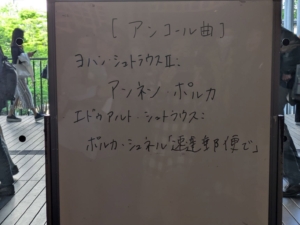 [アンコール曲]
ヨハン・シュトラウスII:
アンネン ポルカ
エドゥアルト・シュトラウス:
ポルカ・シュネル「速達郵便で」